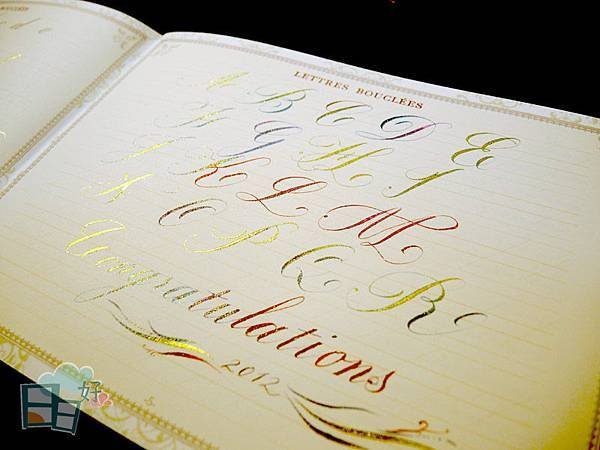 LETTRES BOUCLÉES
A B C D E
F G H I
J K L M
N O P Q R
Congratulations
2012
日日好